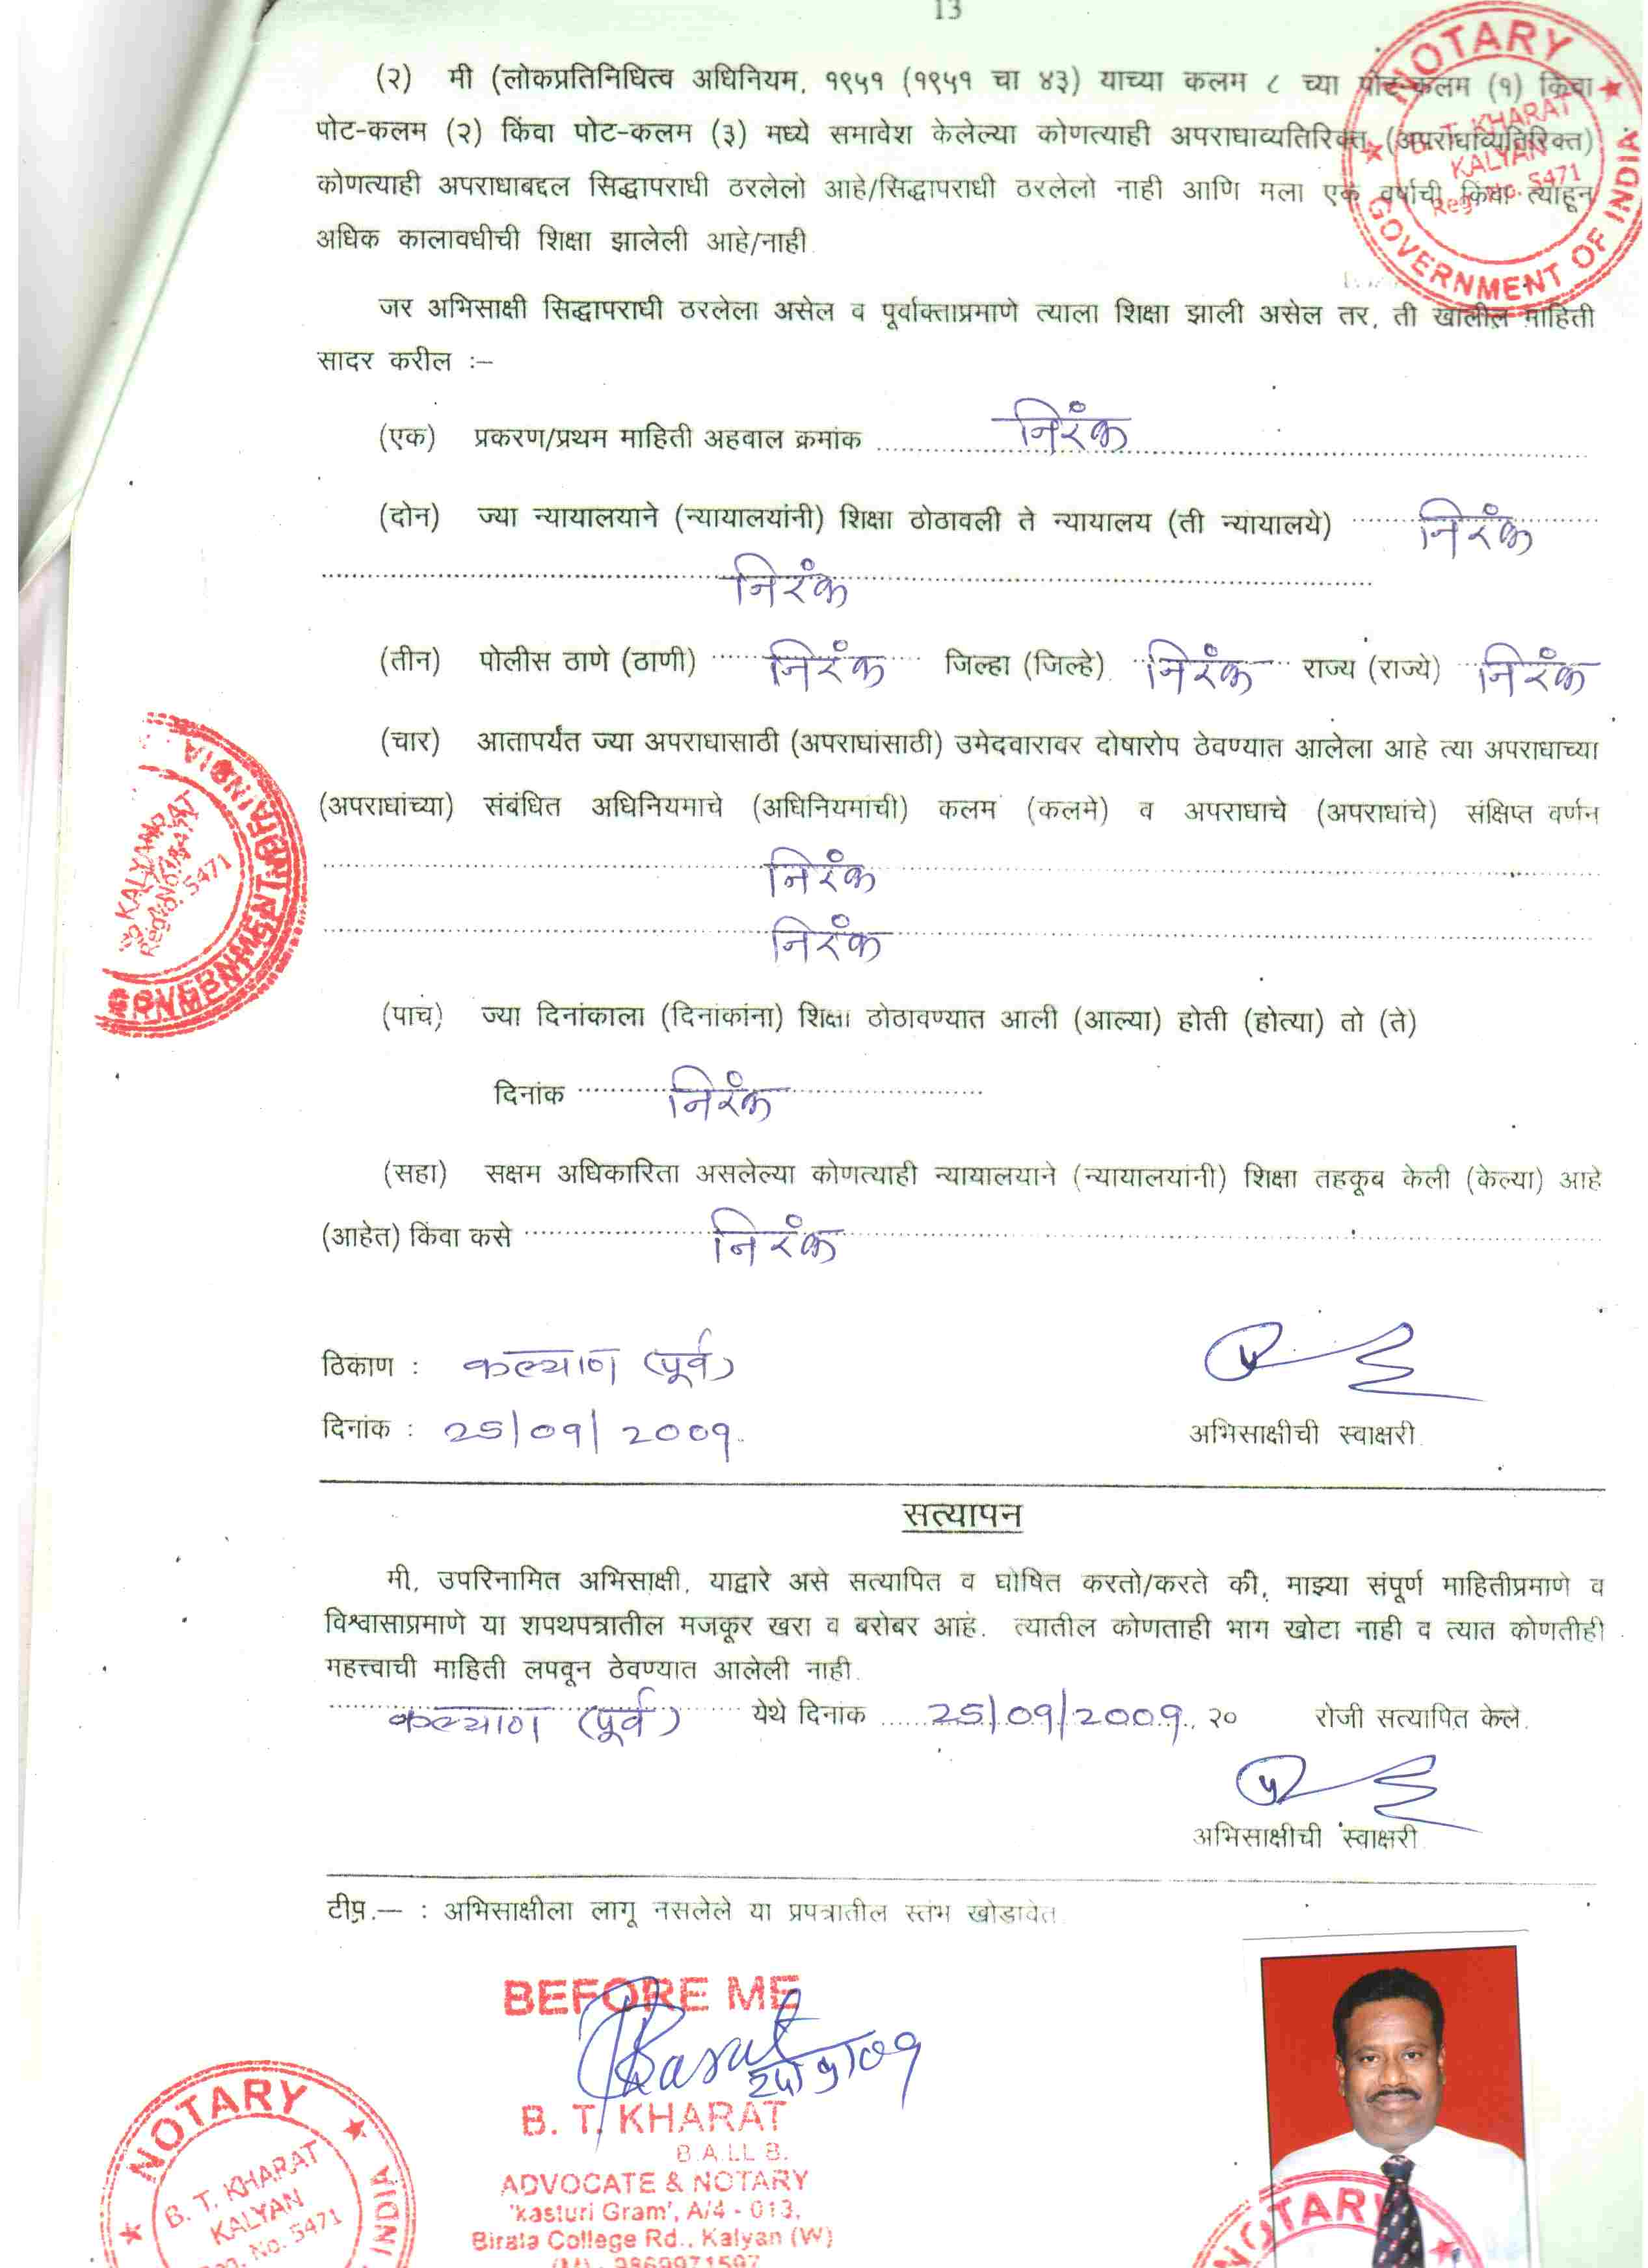 13
(२) मी (लोकप्रतिनिधित्व अधिनियम, १९५१ (१९५१ चा ४३) याच्या कलम ८ च्या पोट-कलम (१) किंवा
पोट-कलम (२) किंवा पोट-कलम (३) मध्ये समावेश केलेल्या कोणत्याही अपराधाव्यतिरिक्त (अपराधांव्यतिरिक्त)
कोणत्याही अपराधाबद्दल सिद्धापराधी ठरलेलो आहे/सिद्धापराधी ठरलेलो नाही आणि मला एक वर्षाची किंवा त्याहून
अधिक कालावधीची शिक्षा झालेली आहे/नाही.
NOTARY
B. T. KHARAT
KALYAN
Reg. No. 5471
GOVERNMENT OF INDIA
जर अभिसाक्षी सिद्धापराधी ठरलेला असेल व पूर्वोक्ताप्रमाणे त्याला शिक्षा झाली असेल तर, ती खालील माहिती
सादर करील :—
(एक) प्रकरण/प्रथम माहिती अहवाल क्रमांक निरंक
(दोन) ज्या न्यायालयाने (न्यायालयांनी) शिक्षा ठोठावली ते न्यायालय (ती न्यायालये) निरंक
निरंक
(तीन) पोलीस ठाणे (ठाणी) निरंक जिल्हा (जिल्हे) निरंक राज्य (राज्ये) निरंक
(चार) आतापर्यंत ज्या अपराधासाठी (अपराधांसाठी) उमेदवारावर दोषारोप ठेवण्यात आलेला आहे त्या अपराधाच्या
(अपराधांच्या) संबंधित अधिनियमाचे (अधिनियमांची) कलम (कलमे) व अपराधाचे (अपराधांचे) संक्षिप्त वर्णन
निरंक
निरंक
KALYAN
5471
(पाच) ज्या दिनांकाला (दिनांकांना) शिक्षा ठोठावण्यात आली (आल्या) होती (होत्या) तो (ते)
दिनांक निरंक
(सहा) सक्षम अधिकारिता असलेल्या कोणत्याही न्यायालयाने (न्यायालयांनी) शिक्षा तहकूब केली (केल्या) आहे
(आहेत) किंवा कसे निरंक
ठिकाण : कल्याण (पूर्व)
दिनांक : 25/09/2009.
अभिसाक्षीची स्वाक्षरी.
सत्यापन
मी, उपरिनामित अभिसाक्षी, याद्वारे असे सत्यापित व घोषित करतो/करते की, माझ्या संपूर्ण माहितीप्रमाणे व
विश्वासाप्रमाणे या शपथपत्रातील मजकूर खरा व बरोबर आहे. त्यातील कोणताही भाग खोटा नाही व त्यात कोणतीही
महत्त्वाची माहिती लपवून ठेवण्यात आलेली नाही.
कल्याण (पूर्व) येथे दिनांक 25/09/2009, २० रोजी सत्यापित केले.
अभिसाक्षीची स्वाक्षरी.
टीप.— : अभिसाक्षीला लागू नसलेले या प्रपत्रातील स्तंभ खोडावेत.
BEFORE ME
B. T. KHARAT
B.A.LL B.
ADVOCATE & NOTARY
'kasturi Gram', A/4 - 013,
Birala College Rd., Kalyan (W)
(M) 9869971597
NOTARY
B. T. KHARAT
KALYAN
Reg. No. 5471
INDIA
NOTARY